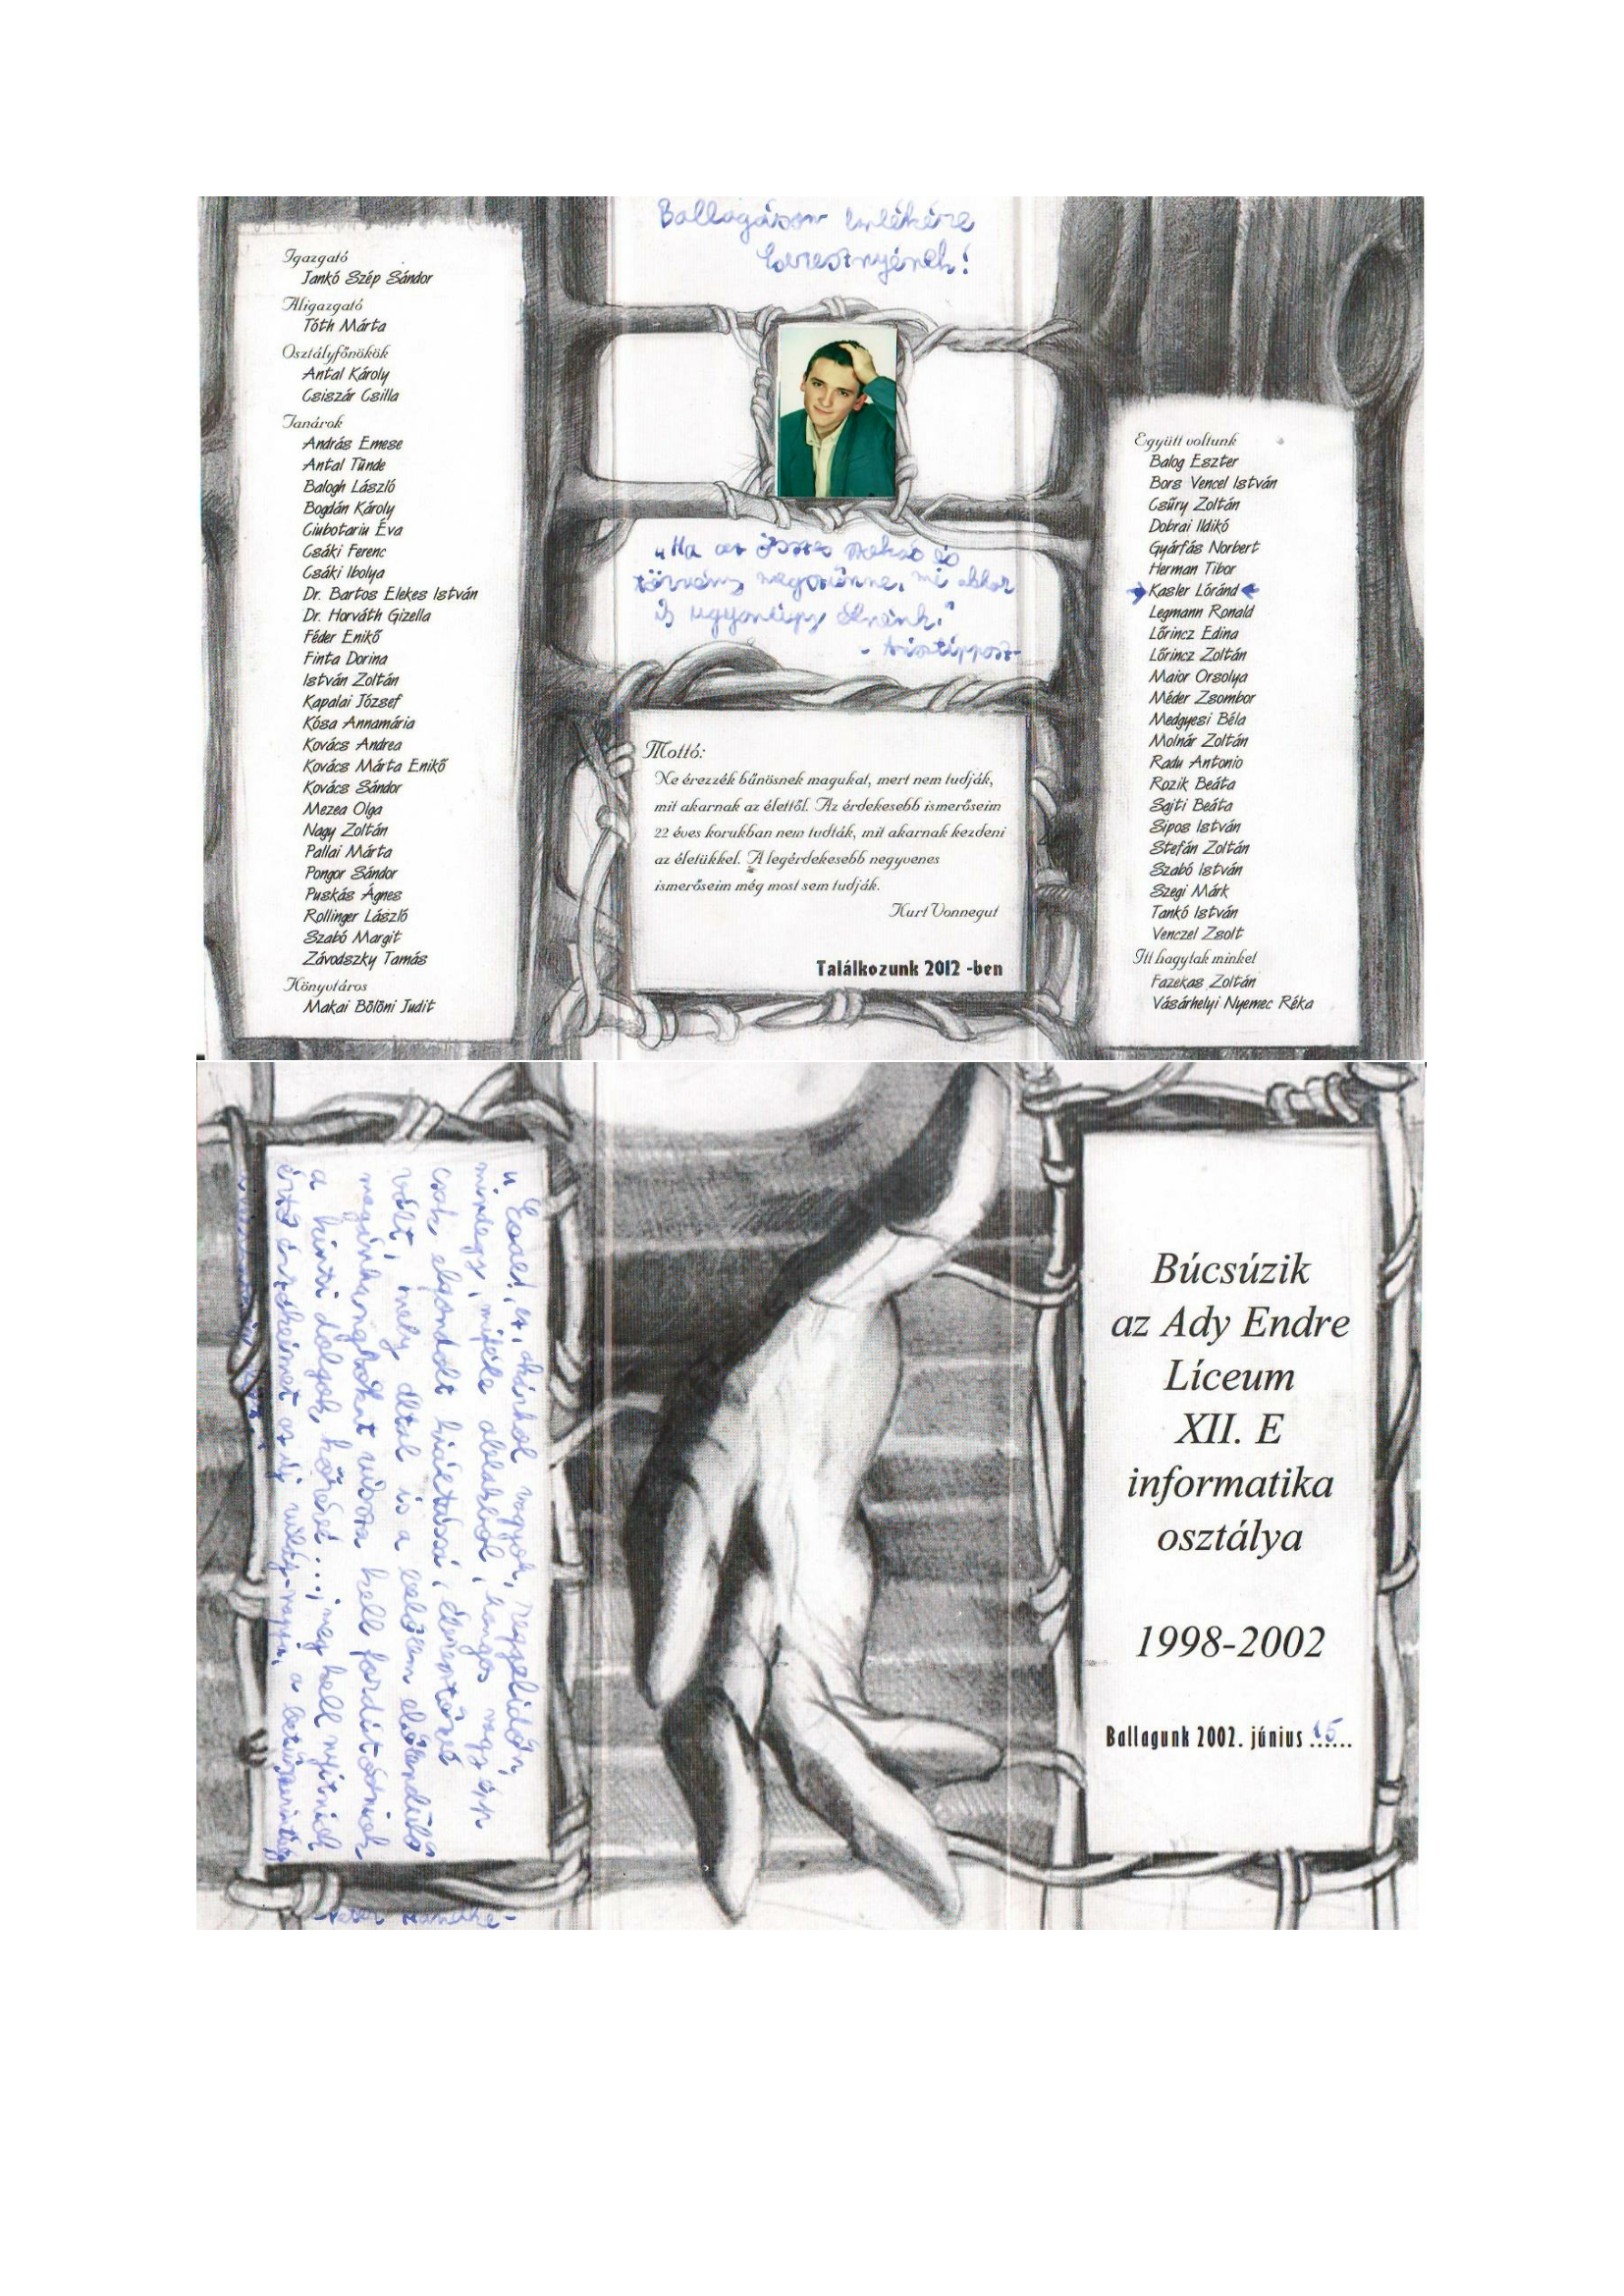 Ballagásom emlékére
Igazgató
Jankó Szép Sándor
Aligazgató
Tóth Márta
Osztályfőnökök
Antal Károly
Csiszár Csilla
Tanárok
András Emese
Antal Tünde
Balogh László
Bogdán Károly
Ciubotariu Éva
Csáki Ferenc
Csáki Ibolya
Dr. Bartos Elekes István
Dr. Horváth Gizella
Féder Enikő
Finta Dorina
István Zoltán
Kapalai József
Kósa Annamária
Kovács Andrea
Kovács Márta Enikő
Kovács Sándor
Mezea Olga
Nagy Zoltán
Pallai Márta
Pongor Sándor
Puskás Ágnes
Rollinger László
Szabó Margit
Závodszky Tamás
Könyvtáros
Makai Bölöni Judit
"Ha az összes szokás és
törvény megszűnne, mi akkor
is ugyanúgy élnénk."
- Arisztipposz-
Mottó:
Ne érezzék bűnösnek magukat, mert nem tudják,
mit akarnak az élettől. Az érdekesebb ismerőseim
22 éves korukban nem tudták, mit akarnak kezdeni
az életükkel. A legérdekesebb negyvenes
ismerőseim még most sem tudják.
Kurt Vonnegut
Találkozunk 2012 -ben
Együtt voltunk
Balog Eszter
Bors Vencel István
Csűry Zoltán
Dobrai Ildikó
Gyárfás Norbert
Herman Tibor
Kasler Lóránd
Legmann Ronald
Lőrincz Edina
Lőrincz Zoltán
Maior Orsolya
Méder Zsombor
Medgyesi Béla
Molnár Zoltán
Radu Antonio
Rozik Beáta
Sajti Beáta
Sipos István
Stefán Zoltán
Szabó István
Szegi Márk
Tankó István
Venczel Zsolt
Itt hagytak minket
Fazekas Zoltán
Vásárhelyi Nyemec Réka
akárhol vagyok, reggelidőn,
mindegy, miféle ablakból, hangos vagy épp
csak elgondolt kiáltássá,
vált, mely által is a
megint vissza kell fordítódniok
a kinti dolgok, meg kell nyitniok
érző érzékeimet az új világ-napra, a
-Peter Handke-
Búcsúzik
az Ady Endre
Líceum
XII. E
informatika
osztálya
1998-2002
Ballagunk 2002. június 15......